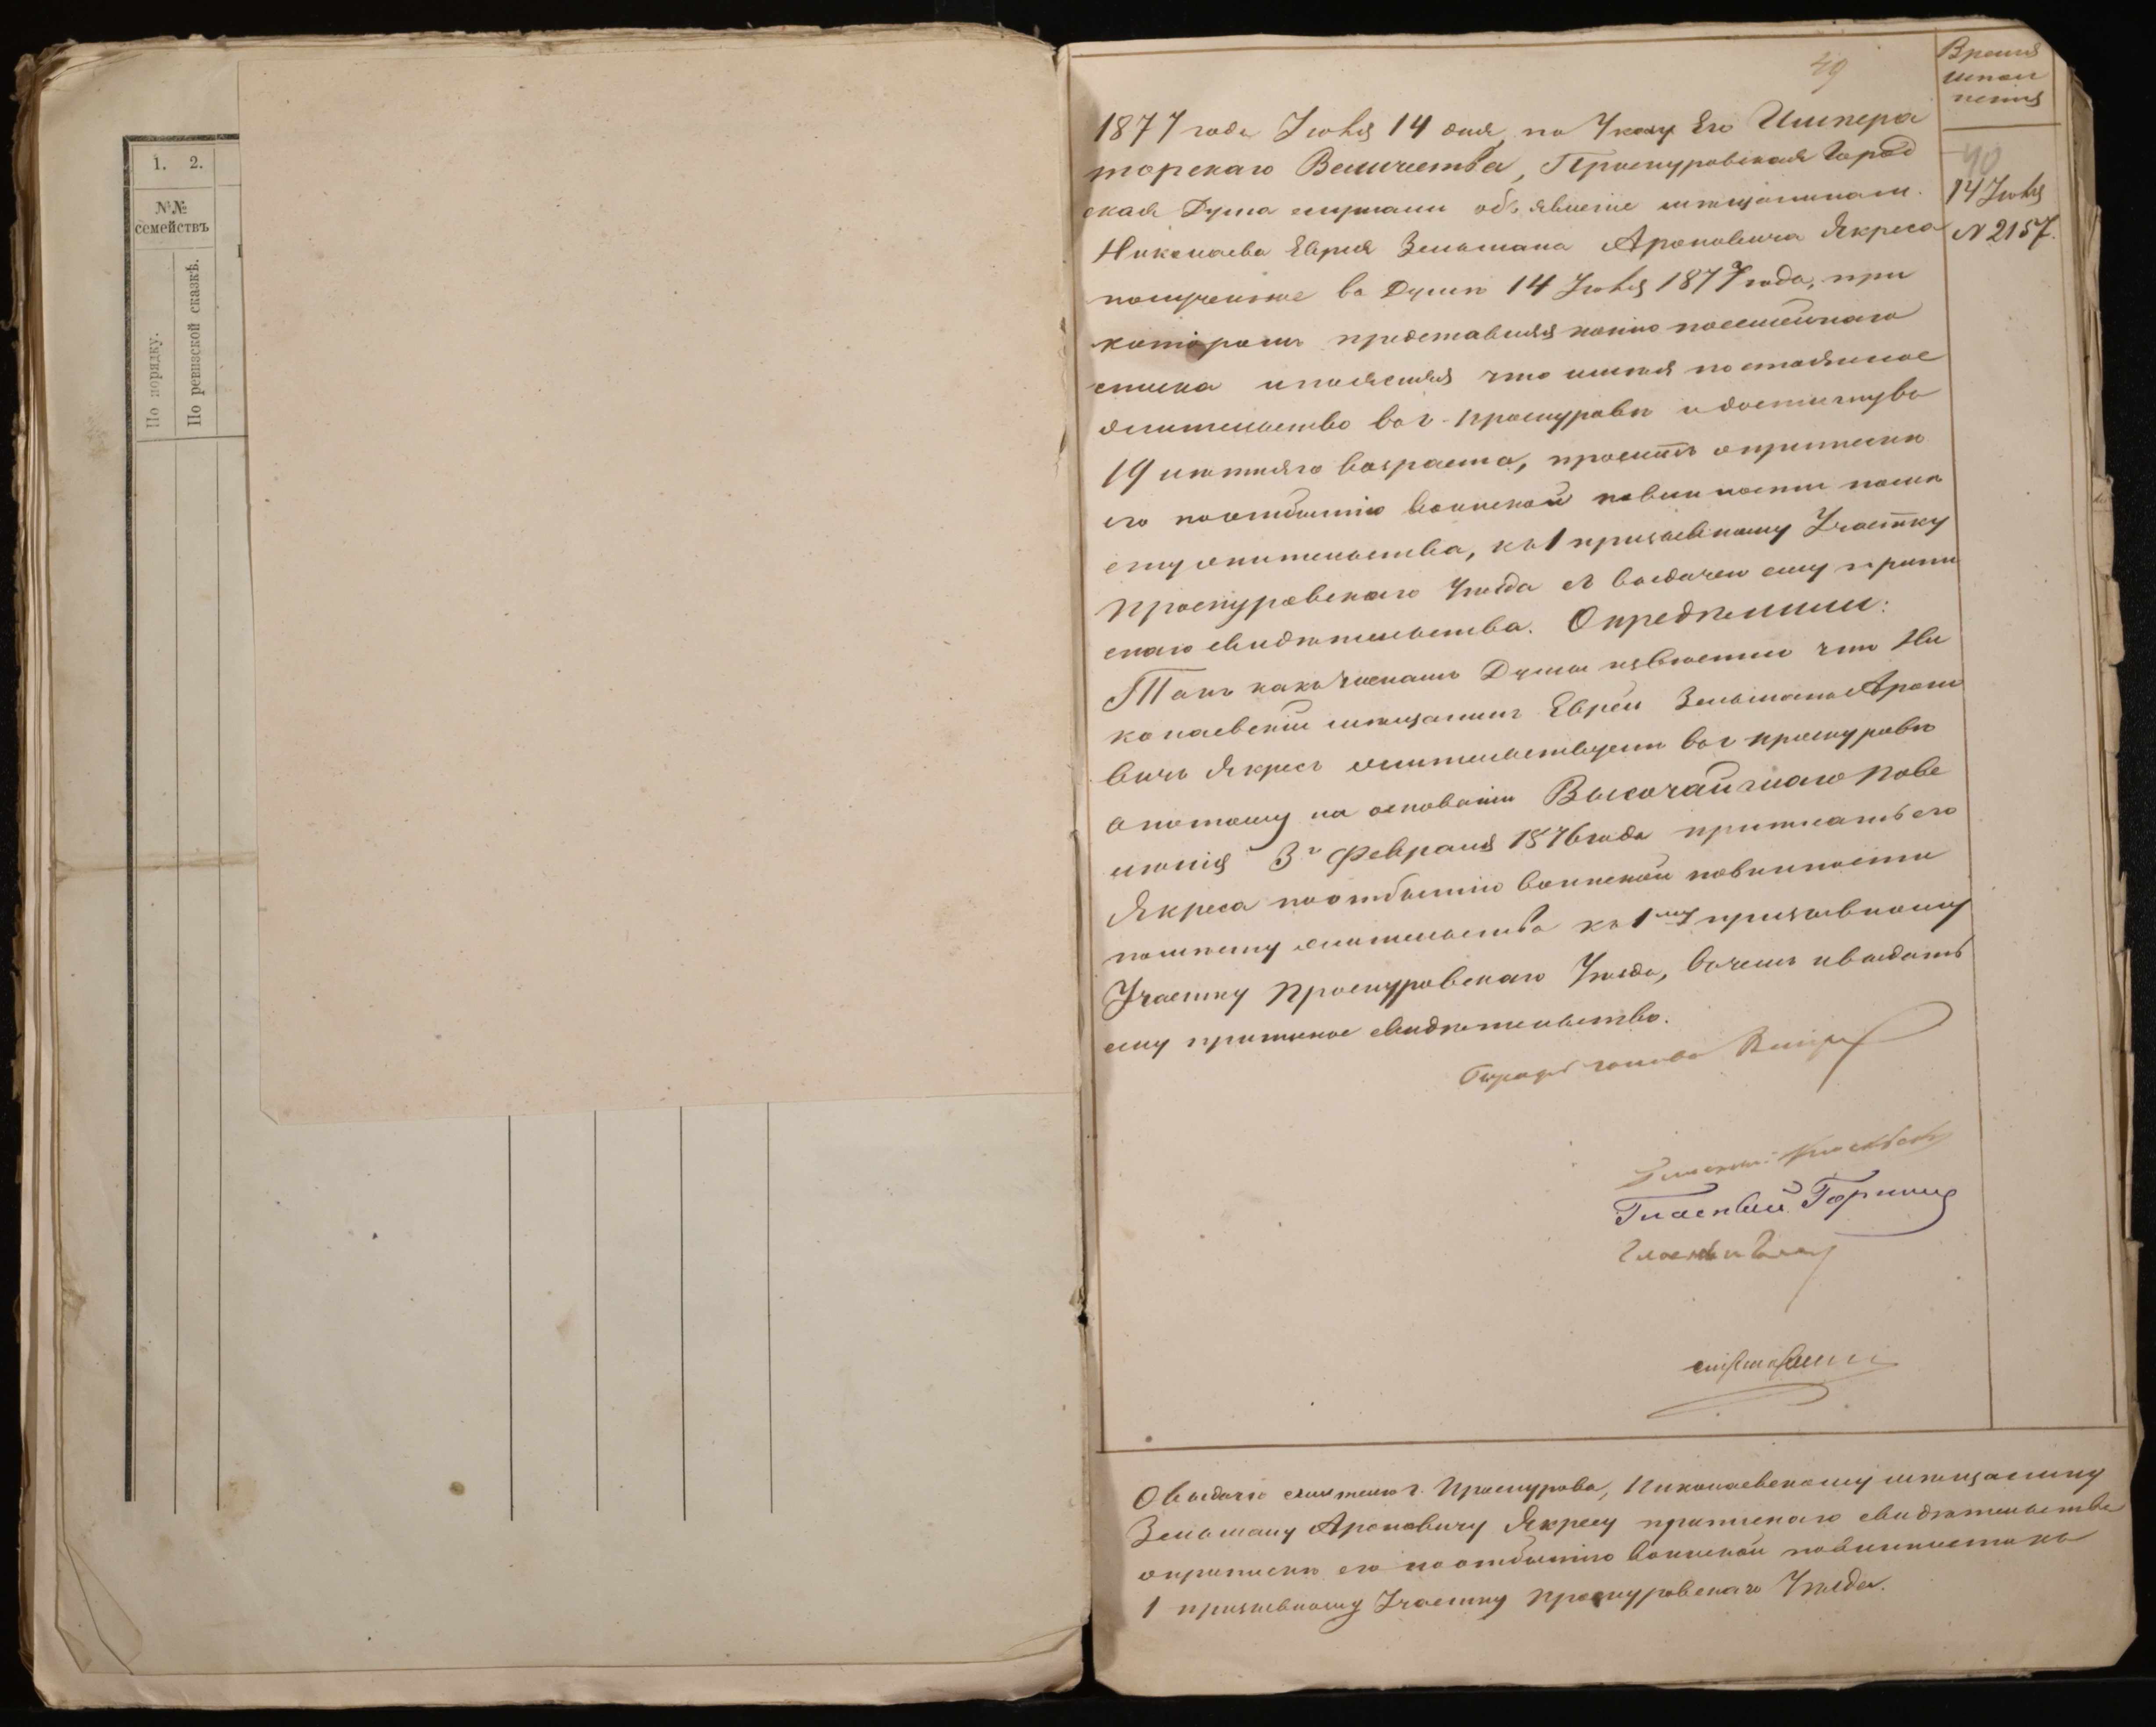 1. 2.
№№
семействъ
По порядку.
По ревизской сказкѣ.
49
Время
испол
ненія
40
14 Іюня
№ 2157.
1877 года Іюня 14 дня, по Указу Его Импера
торскаго Величества, Проскуровская Город
ская Дума слушали объявленіе мѣщанина
Николаева Еврея Зельмана Ароновича Якреса
полученное въ Думѣ 14 Іюня 1877 года, при
которомъ представляя копію посемейнаго
списка и поясняя что имѣя постоянное
жительство въ г. Проскуровѣ и достигнувъ
19 лѣтняго возраста, проситъ о припискѣ
его по отбытію воинской повинности по мѣ
сту жительства, къ 1 призывному Участку
Проскуровскаго Уѣзда съ выдачею ему припи
снаго свидѣтельства. Опредѣлили:
Такъ какъ членамъ Думы извѣстно что Ни
колаевскій мѣщанинъ Еврей ЗельманъАроно
вичъ Якресъ жительствуетъ въ г. Проскуровѣ
а потому на основаніи Высочайшаго Пове
лѣнія 3г Февраля 1876 года приписать его
Якреса по отбытію воинской повинности
по мѣсту жительства къ 1му призывному
Участку Проскуровскаго Уѣзда, въ чемъ и выдать
ему приписное свидѣтельство.
голова
Гласный
Гласный
Гласный
О выдачѣ жителю г. Проскурова, Николаевскому мѣщанину
Зельману Ароновичу Якресу приписнаго свидѣтельства
о припискѣ его по отбытію воинской повинности къ
1 призывному Участку Проскуровскаго Уѣзда.